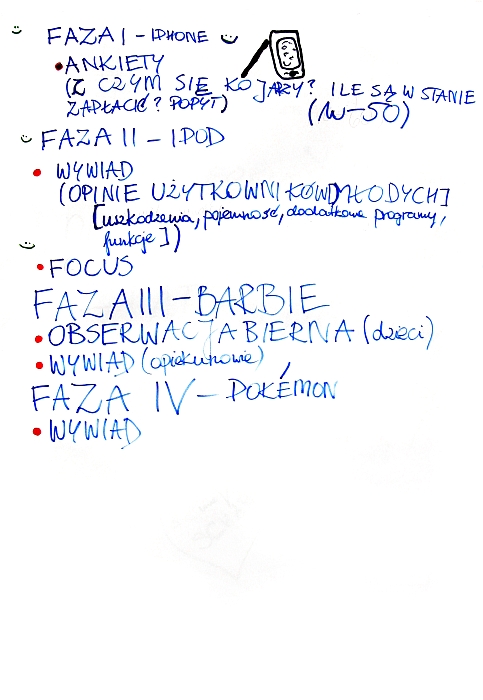 FAZA I - IPHONE
• ANKIETY
(Z CZYM SIĘ KOJARZY? ILE SĄ W STANIE
ZAPŁACIĆ? POPYT) (N-50)
FAZA II - IPOD
• WYWIAD
(OPINIE UŻYTKOWNIKÓW MŁODYCH]
[uszkodzenia, pojemność, dodatkowe programy,
funkcje])
• FOCUS
FAZA III - BARBIE
• OBSERWACJA BIERNA (dzieci)
• WYWIAD (opiekunowie)
FAZA IV - POKÉMON
• WYWIAD